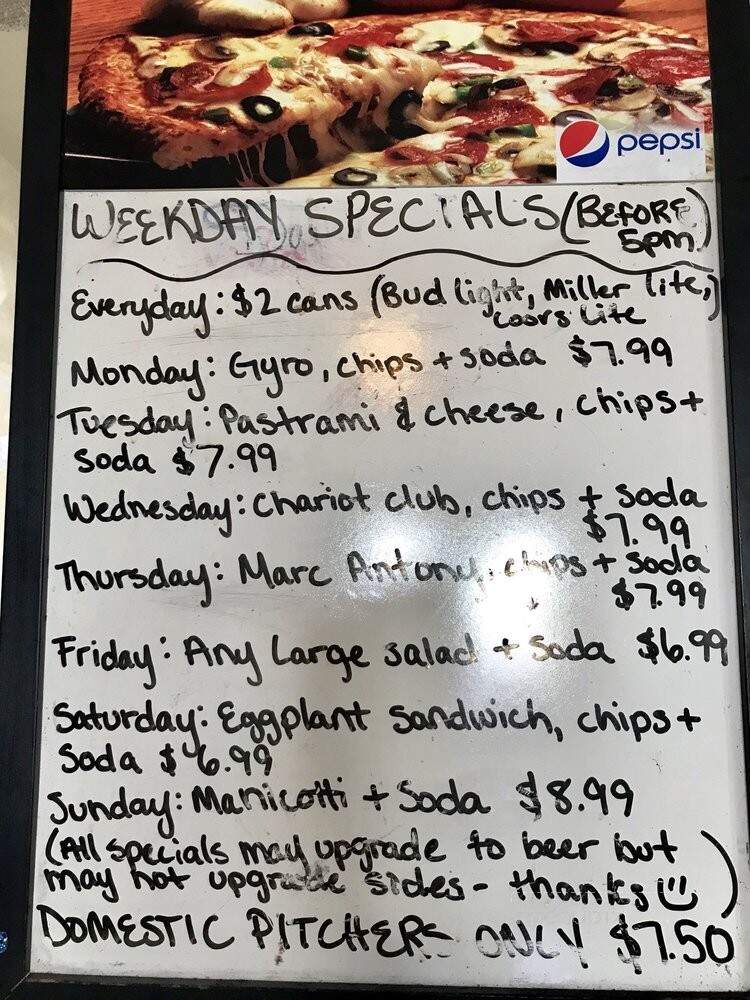 pepsi
WEEKDAY SPECIALS (BEFORE
5pm)
Everyday: $2 cans (Bud light, Miller lite,
coors lite)
Monday: Gyro, chips + soda $7.99
Tuesday: Pastrami & cheese, chips +
soda $7.99
Wednesday: Chariot club, chips + soda
$7.99
Thursday: Marc Antony, chips + soda
$7.99
Friday: Any Large salad + soda $6.99
Saturday: Eggplant sandwich, chips +
soda $6.99
Sunday: Manicotti + Soda $8.99
(All specials may upgrade to beer but
may not upgrade sides - thanks)
DOMESTIC PITCHERS ONLY $7.50